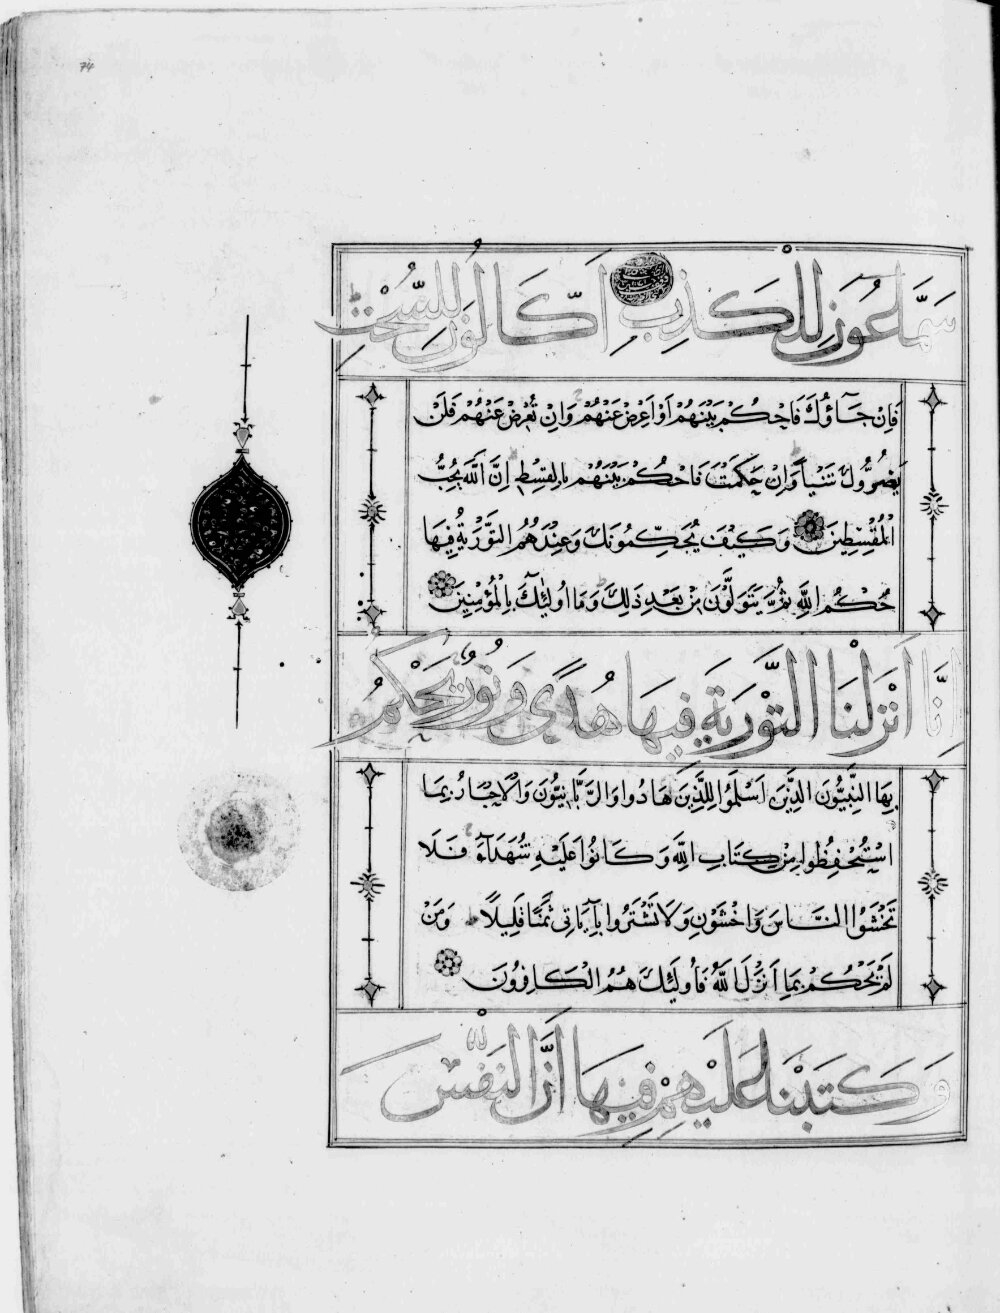 74
سَمَّاعُونَ لِلْكَذِبِ أَكَّالُونَ لِلسُّحْتِ
فَاِنْ جَآؤُكَ فَاحْكُمْ بَيْنَهُمْ اَوْ اَعْرِضْ عَنْهُمْ وَاِنْ تُعْرِضْ عَنْهُمْ فَلَنْ
يَضُرُّوكَ شَيْـًٔا وَاِنْ حَكَمْتَ فَاحْكُمْ بَيْنَهُمْ بِالْقِسْطِ اِنَّ اللّٰهَ يُحِبُّ
الْمُقْسِطِينَ وَكَيْفَ يُحَكِّمُونَكَ وَعِنْدَهُمُ التَّوْرَيةُ فِيهَا
حُكْمُ اللّٰهِ ثُمَّ يَتَوَلَّوْنَ مِنْ بَعْدِ ذَلِكَ وَمَا اُولٰئِكَ بِالْمُؤْمِنِينَ
اِنَّا اَنْزَلْنَا التَّوْرَيةَ فِيهَا هُدًى وَنُورٌ يَحْكُمُ
بِهَا النَّبِيُّونَ الَّذِينَ اَسْلَمُوا لِلَّذِينَ هَادُوا وَالرَّبَّانِيُّونَ وَالْاَحْبَارُ بِمَا
اسْتُحْفِظُوا مِنْ كِتَابِ اللّٰهِ وَكَانُوا عَلَيْهِ شُهَدَآءَ فَلَا
تَخْشَوُا النَّاسَ وَاخْشَوْنِ وَلَا تَشْتَرُوا بِاٰيَاتِى ثَمَنًا قَلِيلًا وَمَنْ
لَمْ يَحْكُمْ بِمَا اَنْزَلَ اللّٰهُ فَاُولٰئِكَ هُمُ الْكَافِرُونَ
وَكَتَبْنَا عَلَيْهِمْ فِيهَا اَنَّ النَّفْسَ